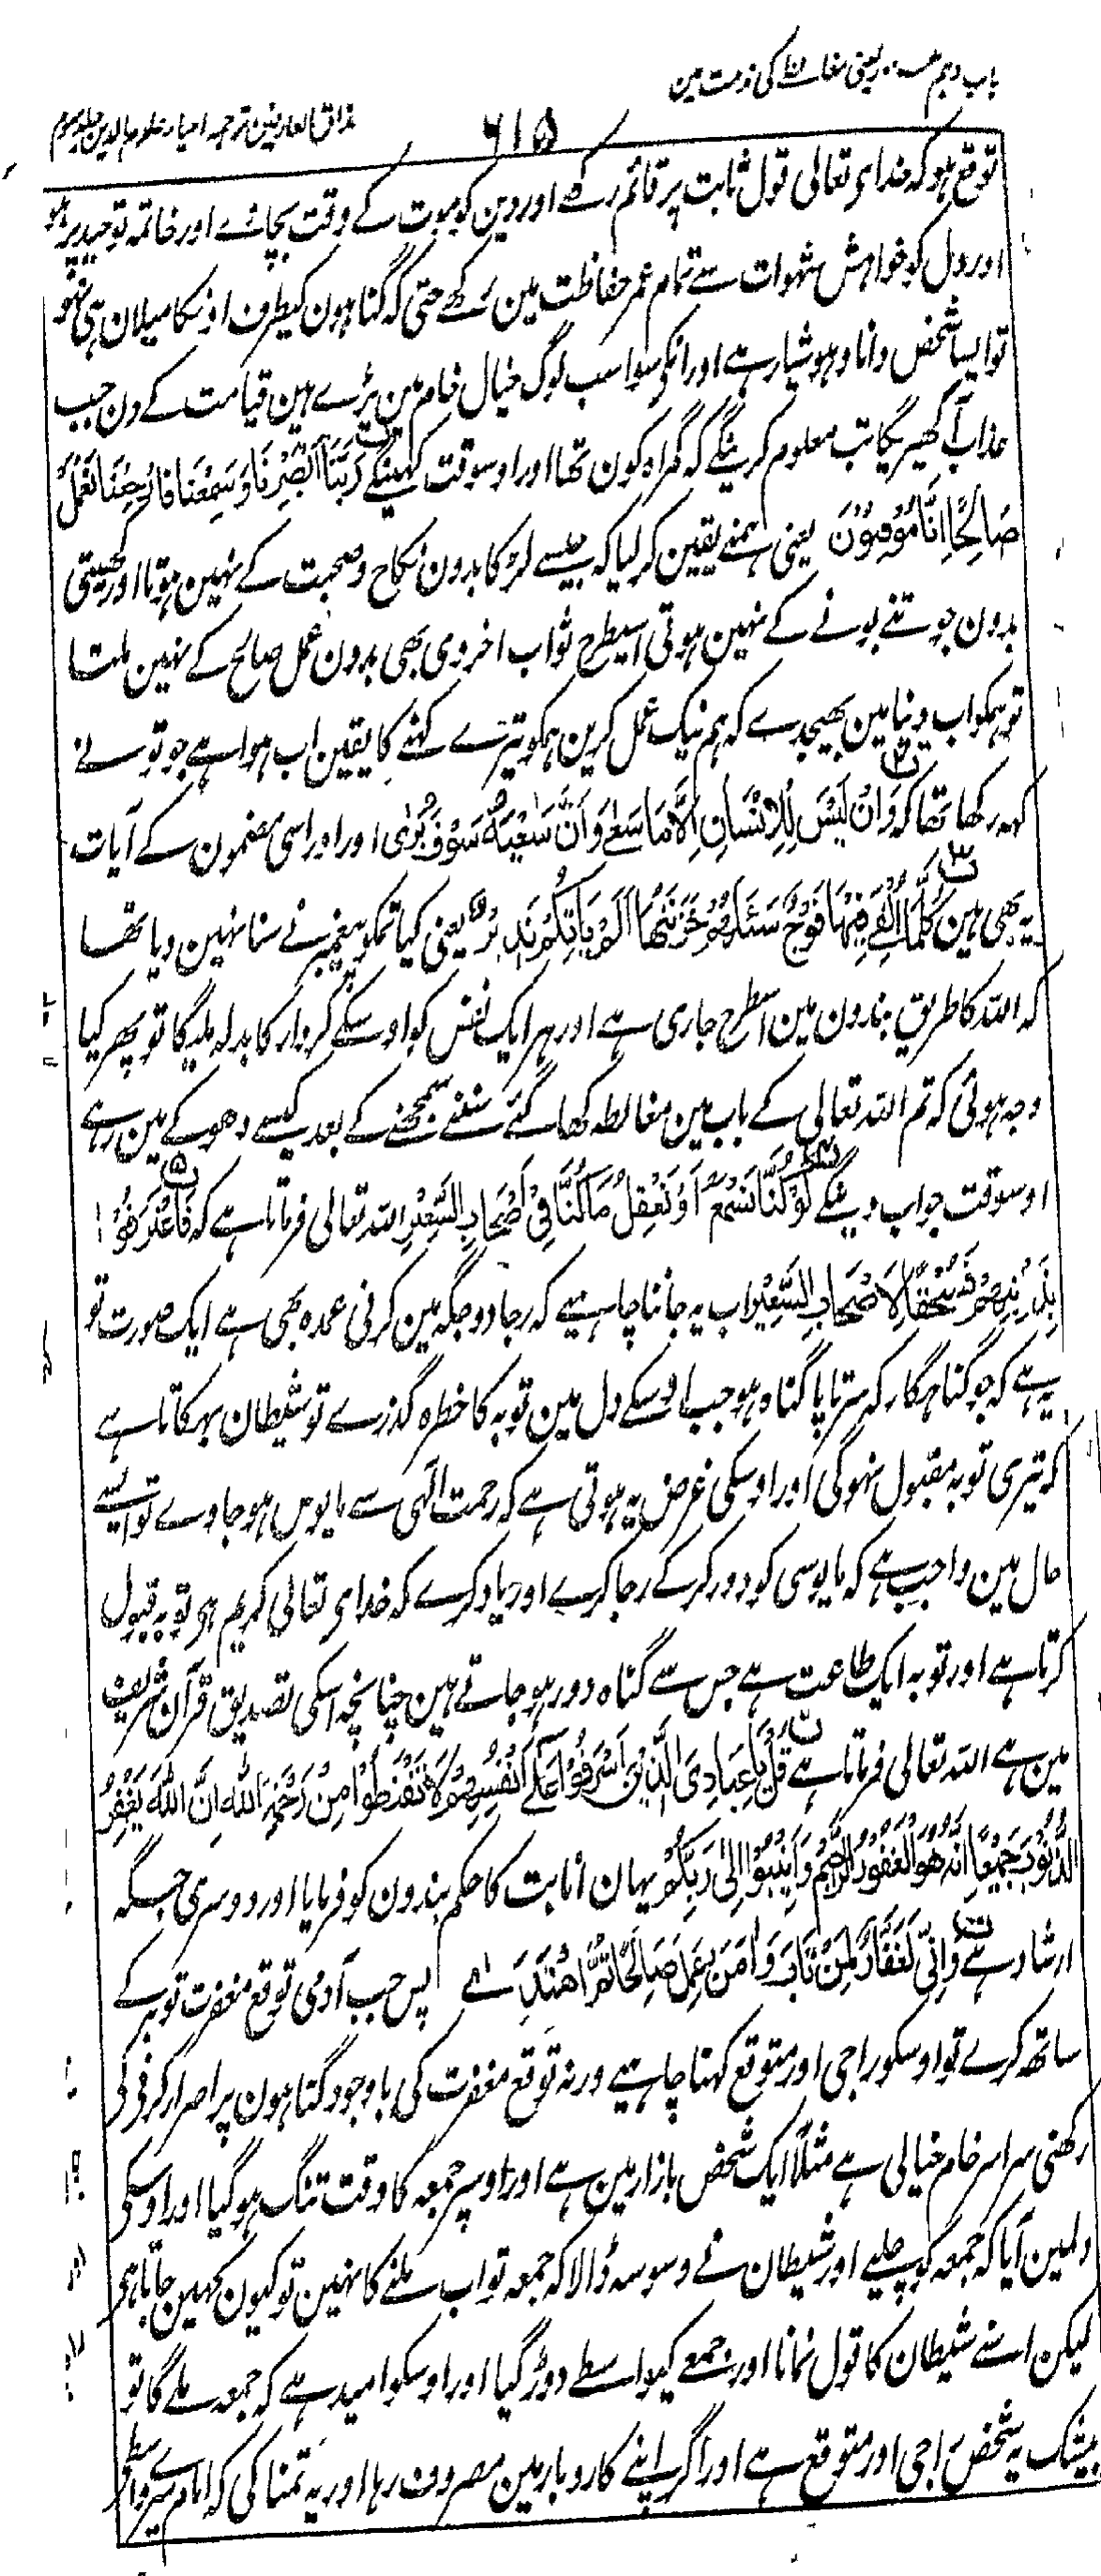 باب دہم یعنی مغالطہ کی مذمت مین
۶۱۵
مذاق العارفین ترجمہ احیاء علوم الدین جلد سوم
توقع ہو کہ خدای تعالی قول ثابت پر قائم رکھے اور دین کو موت کے وقت بچائے اور خاتمہ توحید پر ہو
اور دل کو خواہش شہوات سے تمام عمر حفاظت مین رکھے حتی کہ گناہون کیطرف اوسکا میلان ہی نہو
تو ایسا شخص دانا و ہوشیار ہے اور انکی سوا سب لوگ خیال خام مین پڑے ہین قیامت کے دن جب
عذاب آ گھیریگا تب معلوم کرینگے کہ گمراہ کون تھا اور اوسوقت کہینگے رَبَّنَا اَبْصَرْنَا وَسَمِعْنَا فَارْجِعْنَا نَعْمَلْ
صَالِحًا اِنَّا مُوْقِنُوْنَ یعنی ہمنے یقین کر لیا کہ جیسے لڑکا بدون نکاح و صحبت کے نہین ہوتا اور کھیتی
بدون جوتنے بونے کے نہین ہوتی اسیطرح ثواب اخروی بھی بدون عمل صالح کے نہین ملتا
تو ہمکو اب دنیا مین بھیجدے کہ ہم نیک عمل کرین ہمکو تیرے کہنے کا یقین اب ہوا ہے جو تو نے
کہہ رکھا تھا کہ وَاَنْ لَيْسَ لِلْاِنْسَانِ اِلَّا مَا سَعٰى وَاَنَّ سَعْيَهٗ سَوْفَ يُرٰى اور اور اسی مضمون کے آیات
یہ بھی ہین كُلَّمَا اُلْقِيَ فِيْهَا فَوْجٌ سَئَلَهُمْ خَزَنَتُهَا اَلَمْ يَاْتِكُمْ نَذِيْرٌ یعنی کیا تمکو پیغمبر نے سنا نہین دیا تھا
کہ اللہ کا طریق بندون مین اسطرح جاری ہے اور ہر ایک نفس کو اوسکے کردار کا بدلہ ملیگا تو پھر کیا
وجہ ہوئی کہ تم اللہ تعالی کے باب مین مغالطہ کھا گئے سننے سمجھنے کے بعد کیسے دھوکے مین رہے
اوسوقت جواب دینگے لَوْ كُنَّا نَسْمَعُ اَوْ نَعْقِلُ مَا كُنَّا فِيْ اَصْحَابِ السَّعِيْرِ اللہ تعالی فرماتا ہے کہ فَاعْتَرَفُوْا
بِذَنْبِهِمْ فَسُحْقًا لِاَصْحَابِ السَّعِيْرِ اب یہ جاننا چاہیے کہ رجا دو جگہ مین کرنی عمدہ بھی ہے ایک صورت تو
یہ ہے کہ جو گناہگار کہ سرتاپا گناہ ہو جب اوسکے دل مین توبہ کا خطرہ گذرے تو شیطان بہکاتا ہے
کہ تیری توبہ مقبول نہوگی اور اوسکی غرض یہ ہوتی ہے کہ رحمت الہی سے مایوس ہو جاوے تو ایسے
حال مین واجب ہے کہ مایوسی کو دور کر کے رجا کرے اور یاد کرے کہ خدای تعالی کریم ہی توبہ قبول
کرتا ہے اور توبہ ایک طاعت ہے جس سے گناہ دور ہو جاتے ہین چنانچہ اسکی تصدیق قرآن شریف
مین ہے اللہ تعالی فرماتا ہے قُلْ يَا عِبَادِيَ الَّذِيْنَ اَسْرَفُوْا عَلٰى اَنْفُسِهِمْ لَا تَقْنَطُوْا مِنْ رَحْمَةِ اللّٰهِ اِنَّ اللّٰهَ يَغْفِرُ
الذُّنُوْبَ جَمِيْعًا اِنَّهٗ هُوَ الْغَفُوْرُ الرَّحِيْمُ وَاَنِيْبُوْا اِلٰى رَبِّكُمْ یہان انابت کا حکم بندون کو فرمایا اور دوسری جگہ
ارشاد ہے وَاِنِّيْ لَغَفَّارٌ لِمَنْ تَابَ وَاٰمَنَ وَعَمِلَ صَالِحًا ثُمَّ اهْتَدٰى پس جب آدمی توقع مغفرت توبہ کے
ساتھ کرے تو اوسکو راجی اور متوقع کہنا چاہیے ورنہ توقع مغفرت کی باوجود گناہون پر اصرار کرنی کی
رکھنی سراسر خام خیالی ہے مثلاً ایک شخص بازار مین ہے اور اوسپر جمعہ کا وقت تنگ ہو گیا اور اوسکی
دلمین آیا کہ جمعہ کو چلیے اور شیطان نے وسوسہ ڈالا کہ جمعہ تو اب ملنے کا نہین تو کیون کہین جاتا ہی
لیکن اسنے شیطان کا قول نمانا اور جمعے کیواسطے دوڑ گیا اور اوسکو امید ہے کہ جمعہ ملے گا تو
بیشک یہ شخص راجی اور متوقع ہے اور اگر اپنے کاروبار مین مصروف رہا اور یہ تمنا کی کہ امام میرے واسطے